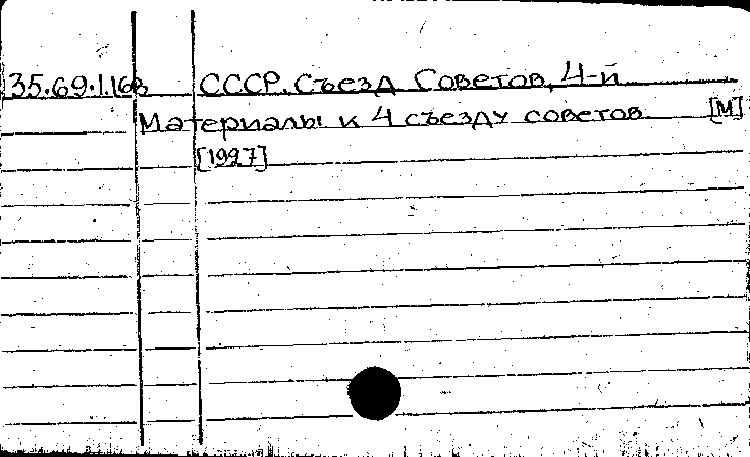 35.69.1.168 СССР. Съезд Советов, 4-й
Материалы к 4 съезду советов. [М]
[1927]